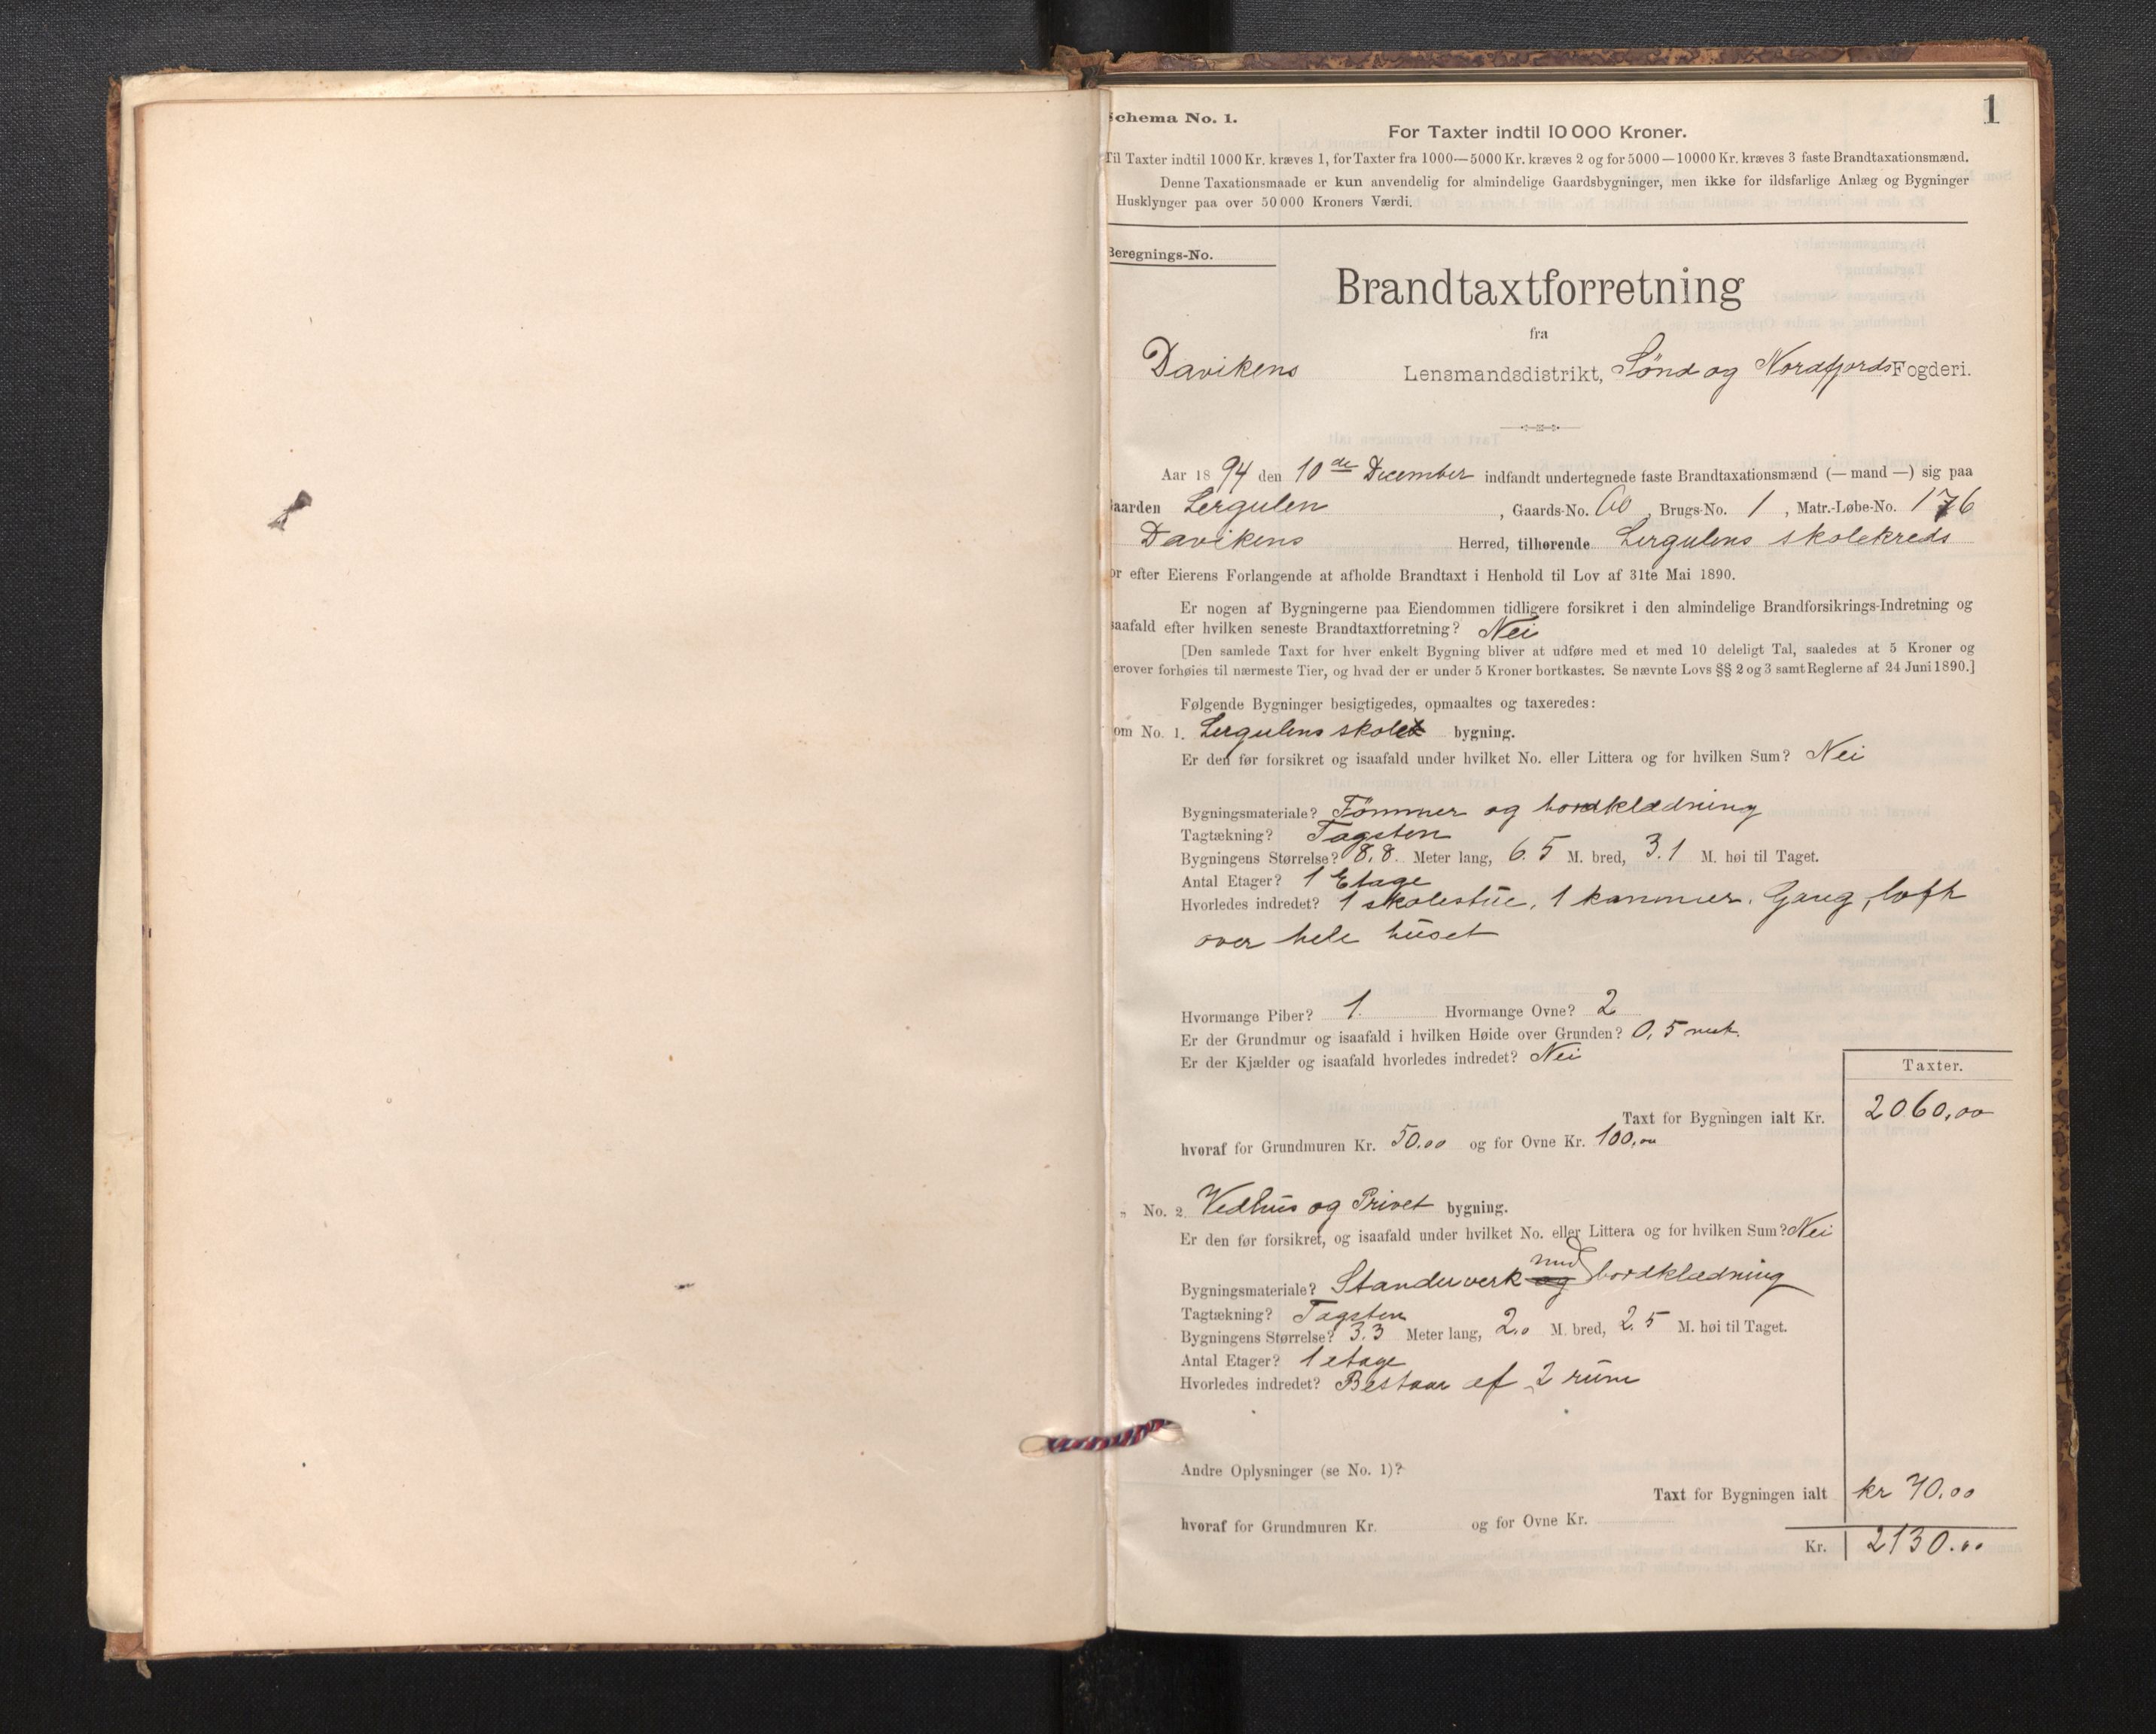 1
Schema No. 1.
For Taxter indtil 10 000 Kroner.
Til Taxter indtil 1000 Kr. kræves 1, for Taxter fra 1000—5000 Kr. kræves 2 og for 5000—10000 Kr. kræves 3 faste Brandtaxationsmænd.
Denne Taxationsmaade er kun anvendelig for almindelige Gaardsbygninger, men ikke for ildsfarlige Anlæg og Bygninger
Husklynger paa over 50 000 Kroners Værdi.
Beregnings-No.
Brandtaxtforretning
fra
Davikens Lensmandsdistrikt, Sønd og Nordfjords Fogderi.
Aar 1894 den 10de December indfandt undertegnede faste Brandtaxationsmænd (— mand —) sig paa
aarden Lergulen, Gaards-No. 60, Brugs-No. 1, Matr.-Løbe-No. 176
Davikens Herred, tilhørende Lergulens skolekreds
or efter Eierens Forlangende at afholde Brandtaxt i Henhold til Lov af 31te Mai 1890.
Er nogen af Bygningerne paa Eiendommen tidligere forsikret i den almindelige Brandforsikrings-Indretning og
saafald efter hvilken seneste Brandtaxtforretning? Nei
[Den samlede Taxt for hver enkelt Bygning bliver at udføre med et med 10 deleligt Tal, saaledes at 5 Kroner og
erover forhøies til nærmeste Tier, og hvad der er under 5 Kroner bortkastes. Se nævnte Lovs §§ 2 og 3 samt Reglerne af 24 Juni 1890.]
Følgende Bygninger besigtigedes, opmaaltes og taxeredes:
om No. 1. Lergulens skole bygning.
Er den før forsikret og isaafald under hvilket No. eller Littera og for hvilken Sum? Nei
Bygningsmateriale? Tømmer og bordklædning
Tagtækning? Tagsten
Bygningens Størrelse? 8,8. Meter lang, 6.5 M. bred, 3.1 M. høi til Taget.
Antal Etager? 1 Etage
Hvorledes indredet? 1 skolestue, 1 kammer. Gang, loft
over hele huset
Hvormange Piber? 1. Hvormange Ovne? 2
Er der Grundmur og isaafald i hvilken Høide over Grunden? 0,5 met.
Er der Kjælder og isaafald hvorledes indredet? Nei
Taxter.
Taxt for Bygningen ialt Kr. 2060,00
hvoraf for Grundmuren Kr. 50.00 og for Ovne Kr. 100,00
„ No. 2. Vedhus og Privet bygning.
Er den før forsikret, og isaafald under hvilket No. eller Littera og for hvilken Sum? Nei
med
Bygningsmateriale? Standerverk og bordklædning
Tagtækning? Tagsten
Bygningens Størrelse? 3.3 Meter lang, 2.0 M. bred, 2.5 M. høi til Taget.
Antal Etager? 1 etage
Hvorledes indredet? Bestaar af 2 rum
Andre Oplysninger (se No. 1)?
Taxt for Bygningen ialt kr 70.00
hvoraf for Grundmuren Kr. og for Ovne Kr.
Kr. 2130.00